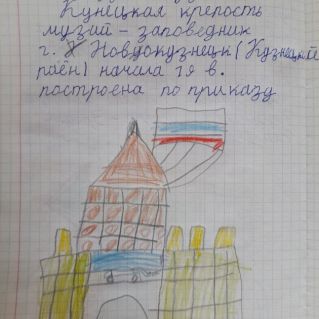 Кунецкая крепость
музий - заповедник
г. Новдокузнецк (Кузнецкий
раён) начала 19 в.
построена по приказу